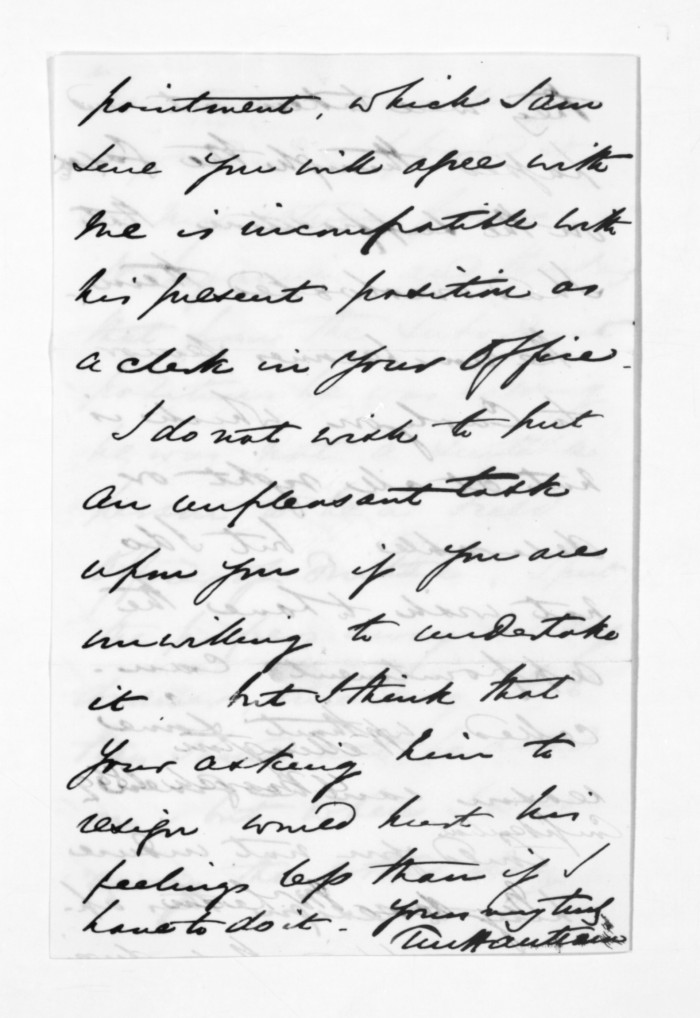 pointment, which I am
sure you will agree with
me is incompatible with
his present position as
a clerk in your Office.
I do not wish to put
an unpleasant task
upon you if you are
unwilling to undertake
it but I think that
your asking him to
resign would hurt his
feelings less than if I
have to do it - Yours very truly